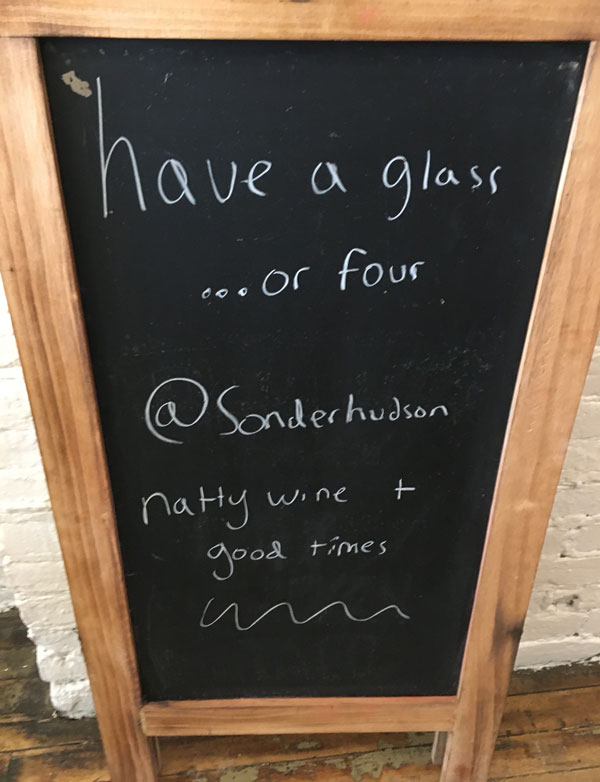 have a glass
...or four
@Sonderhudson
natty wine +
good times